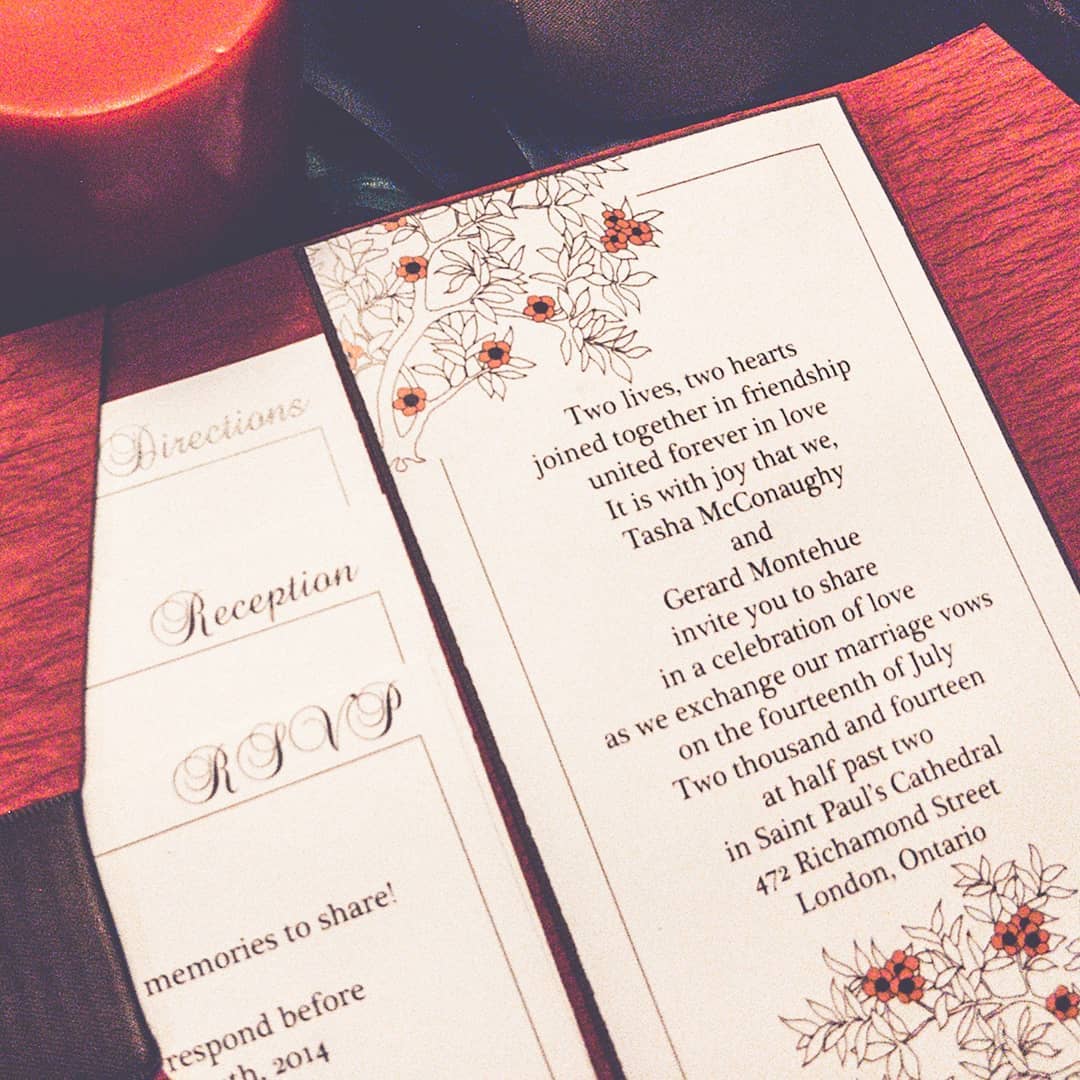 Directions
Reception
RSVP
memories to share!
respond before
th, 2014
Two lives, two hearts
joined together in friendship
united forever in love
It is with joy that we,
Tasha McConaughy
and
Gerard Montehue
invite you to share
in a celebration of love
as we exchange our marriage vows
on the fourteenth of July
Two thousand and fourteen
at half past two
in Saint Paul's Cathedral
472 Richamond Street
London, Ontario